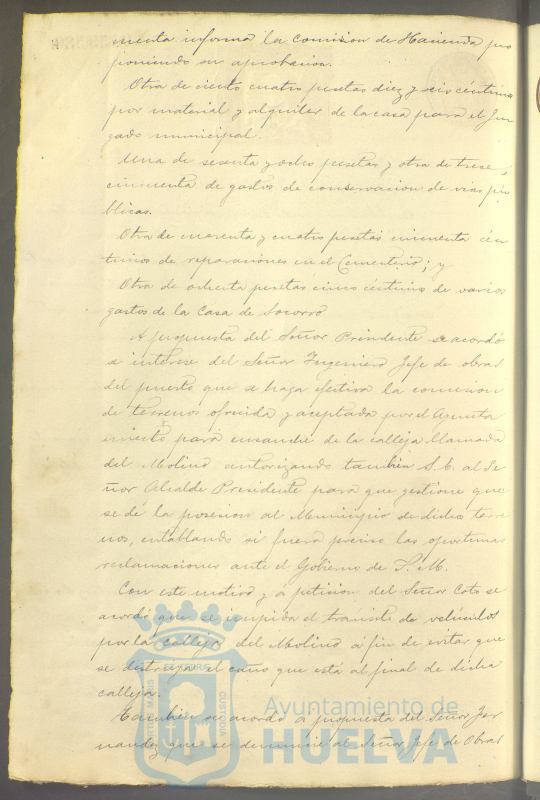 menta informa la Comision de Hacienda pro
poniendo su aprobacion.
Otra de ciento cuatro pesetas diez y seis céntimos
por material y alquiler de la casa para el Juz
gado municipal.
Una de sesenta y ocho pesetas y otra de trece,
cincuenta de gastos de conservacion de vias pú
blicas.
Otra de cuarenta y cuatro pesetas cincuenta cén
timos de reparaciones en el Cementerio; y
Otra de ochenta pesetas cinco céntimos de varios
gastos de la Casa de Socorro
A propuesta del Señor Presidente se acordó
se interese del Señor Ingeniero Jefe de obras
del puerto que se haga efectiva la concesion
de terrenos ofrecida y aceptada por el Ayunta
miento para ensanche de la calleja llamada
del Molino autorizando tambien S. E. al Se
ñor Alcalde Presidente para que gestione que
se dé la posesion al Municipio de dichos terre
nos, entablando si fuera preciso las oportunas
reclamaciones ante el Gobierno de S. M.
Con este motivo y a peticion del Señor Coto se
acordó que se impida el transito de vehiculos
por la calleja del Molino a fin de evitar que
se destruya el caño que está al final de dicha
calleja.
Tambien se acordó a propuesta del Señor Fer
nandez que se denuncie al Señor Jefe de Obras
Ayuntamiento de
HUELVA
PORTUS MARIS
ET TERRE
CUSTODIA